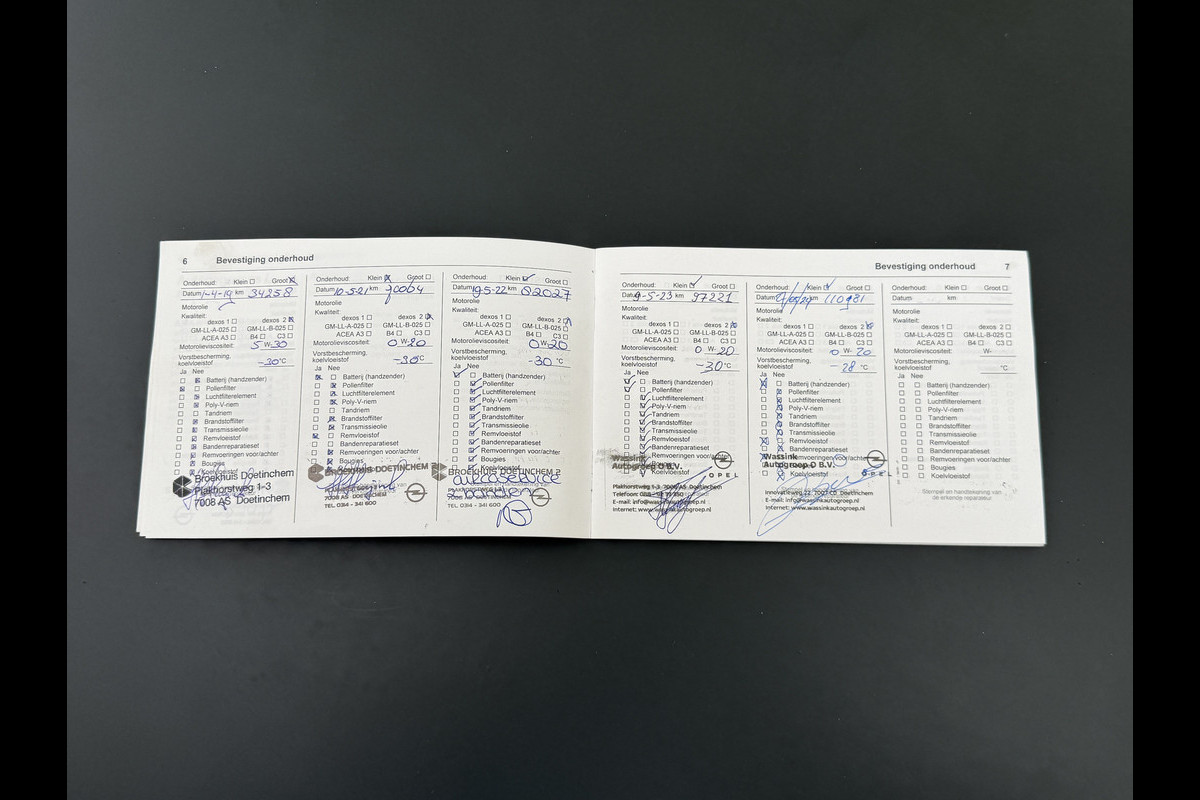 6 Bevestiging onderhoud
Onderhoud: Klein Groot
Datum 1-4-19 km 34258
Motorolie
Kwaliteit:
dexos 1 dexos 2
GM-LL-A-025 GM-LL-B-025
ACEA A3 B4 C3
Motorolieviscositeit: 5 W-30
Vorstbescherming,
koelvloeistof -30 °C
Ja Nee
Batterij (handzender)
Pollenfilter
Luchtfilterelement
Poly-V-riem
Tandriem
Brandstoffilter
Transmissieolie
Remvloeistof
Bandenreparatieset
Remvoeringen voor/achter
Bougies
Koelvloeistof
Broekhuis Doetinchem
Plakhorstweg 1-3
7008 AS Doetinchem
Onderhoud: Klein Groot
Datum 10-5-21 km 70064
Motorolie
Kwaliteit:
dexos 1 dexos 2
GM-LL-A-025 GM-LL-B-025
ACEA A3 B4 C3
Motorolieviscositeit: 0 W-20
Vorstbescherming,
koelvloeistof -30 °C
Ja Nee
Batterij (handzender)
Pollenfilter
Luchtfilterelement
Poly-V-riem
Tandriem
Brandstoffilter
Transmissieolie
Remvloeistof
Bandenreparatieset
Remvoeringen voor/achter
Bougies
BROEKHUIS DOETINCHEM
7008 AS DOETINCHEM
TEL. 0314 - 341 600
Onderhoud: Klein Groot
Datum 19-5-22 km 82027
Motorolie
Kwaliteit:
dexos 1 dexos 2
GM-LL-A-025 GM-LL-B-025
ACEA A3 B4 C3
Motorolieviscositeit: 0 W-20
Vorstbescherming,
koelvloeistof -30 °C
Ja Nee
Batterij (handzender)
Pollenfilter
Luchtfilterelement
Poly-V-riem
Tandriem
Brandstoffilter
Transmissieolie
Remvloeistof
Bandenreparatieset
Remvoeringen voor/achter
Bougies
Koelvloeistof
BROEKHUIS DOETINCHEM
PLAKHORSTWEG 1-3
TEL. 0314 - 341 600
Bevestiging onderhoud 7
Onderhoud: Klein Groot
Datum 9-5-23 km 97221
Motorolie
Kwaliteit:
dexos 1 dexos 2
GM-LL-A-025 GM-LL-B-025
ACEA A3 B4 C3
Motorolieviscositeit: 0 W-20
Vorstbescherming,
koelvloeistof -30 °C
Ja Nee
Batterij (handzender)
Pollenfilter
Luchtfilterelement
Poly-V-riem
Tandriem
Brandstoffilter
Transmissieolie
Remvloeistof
Bandenreparatieset
Remvoeringen voor/achter
Bougies
Koelvloeistof
Wassink
Autogroep D B.V.
OPEL
Plakhorstweg 1-3, 7008 AS Doetinchem
E-mail: info@wassinkautogroep.nl
Internet: www.wassinkautogroep.nl
Onderhoud: Klein Groot
Datum km 110981
Motorolie
Kwaliteit:
dexos 1 dexos 2
GM-LL-A-025 GM-LL-B-025
ACEA A3 B4 C3
Motorolieviscositeit: 0 W-20
Vorstbescherming,
koelvloeistof -28 °C
Ja Nee
Batterij (handzender)
Pollenfilter
Luchtfilterelement
Poly-V-riem
Tandriem
Brandstoffilter
Transmissieolie
Remvloeistof
Bandenreparatieset
Remvoeringen voor/achter
Koelvloeistof
Wassink
Autogroep D B.V.
OPEL
Innovatieweg 22, 7007 CD Doetinchem
E-mail: info@wassinkautogroep.nl
Internet: www.wassinkautogroep.nl
Onderhoud: Klein Groot
Datum km
Motorolie
Kwaliteit:
dexos 1 dexos 2
GM-LL-A-025 GM-LL-B-025
ACEA A3 B4 C3
Motorolieviscositeit: W-
Vorstbescherming,
koelvloeistof °C
Ja Nee
Batterij (handzender)
Pollenfilter
Luchtfilterelement
Poly-V-riem
Tandriem
Brandstoffilter
Transmissieolie
Remvloeistof
Bandenreparatieset
Remvoeringen voor/achter
Bougies
Koelvloeistof
Stempel en handtekening van
de erkende reparateur